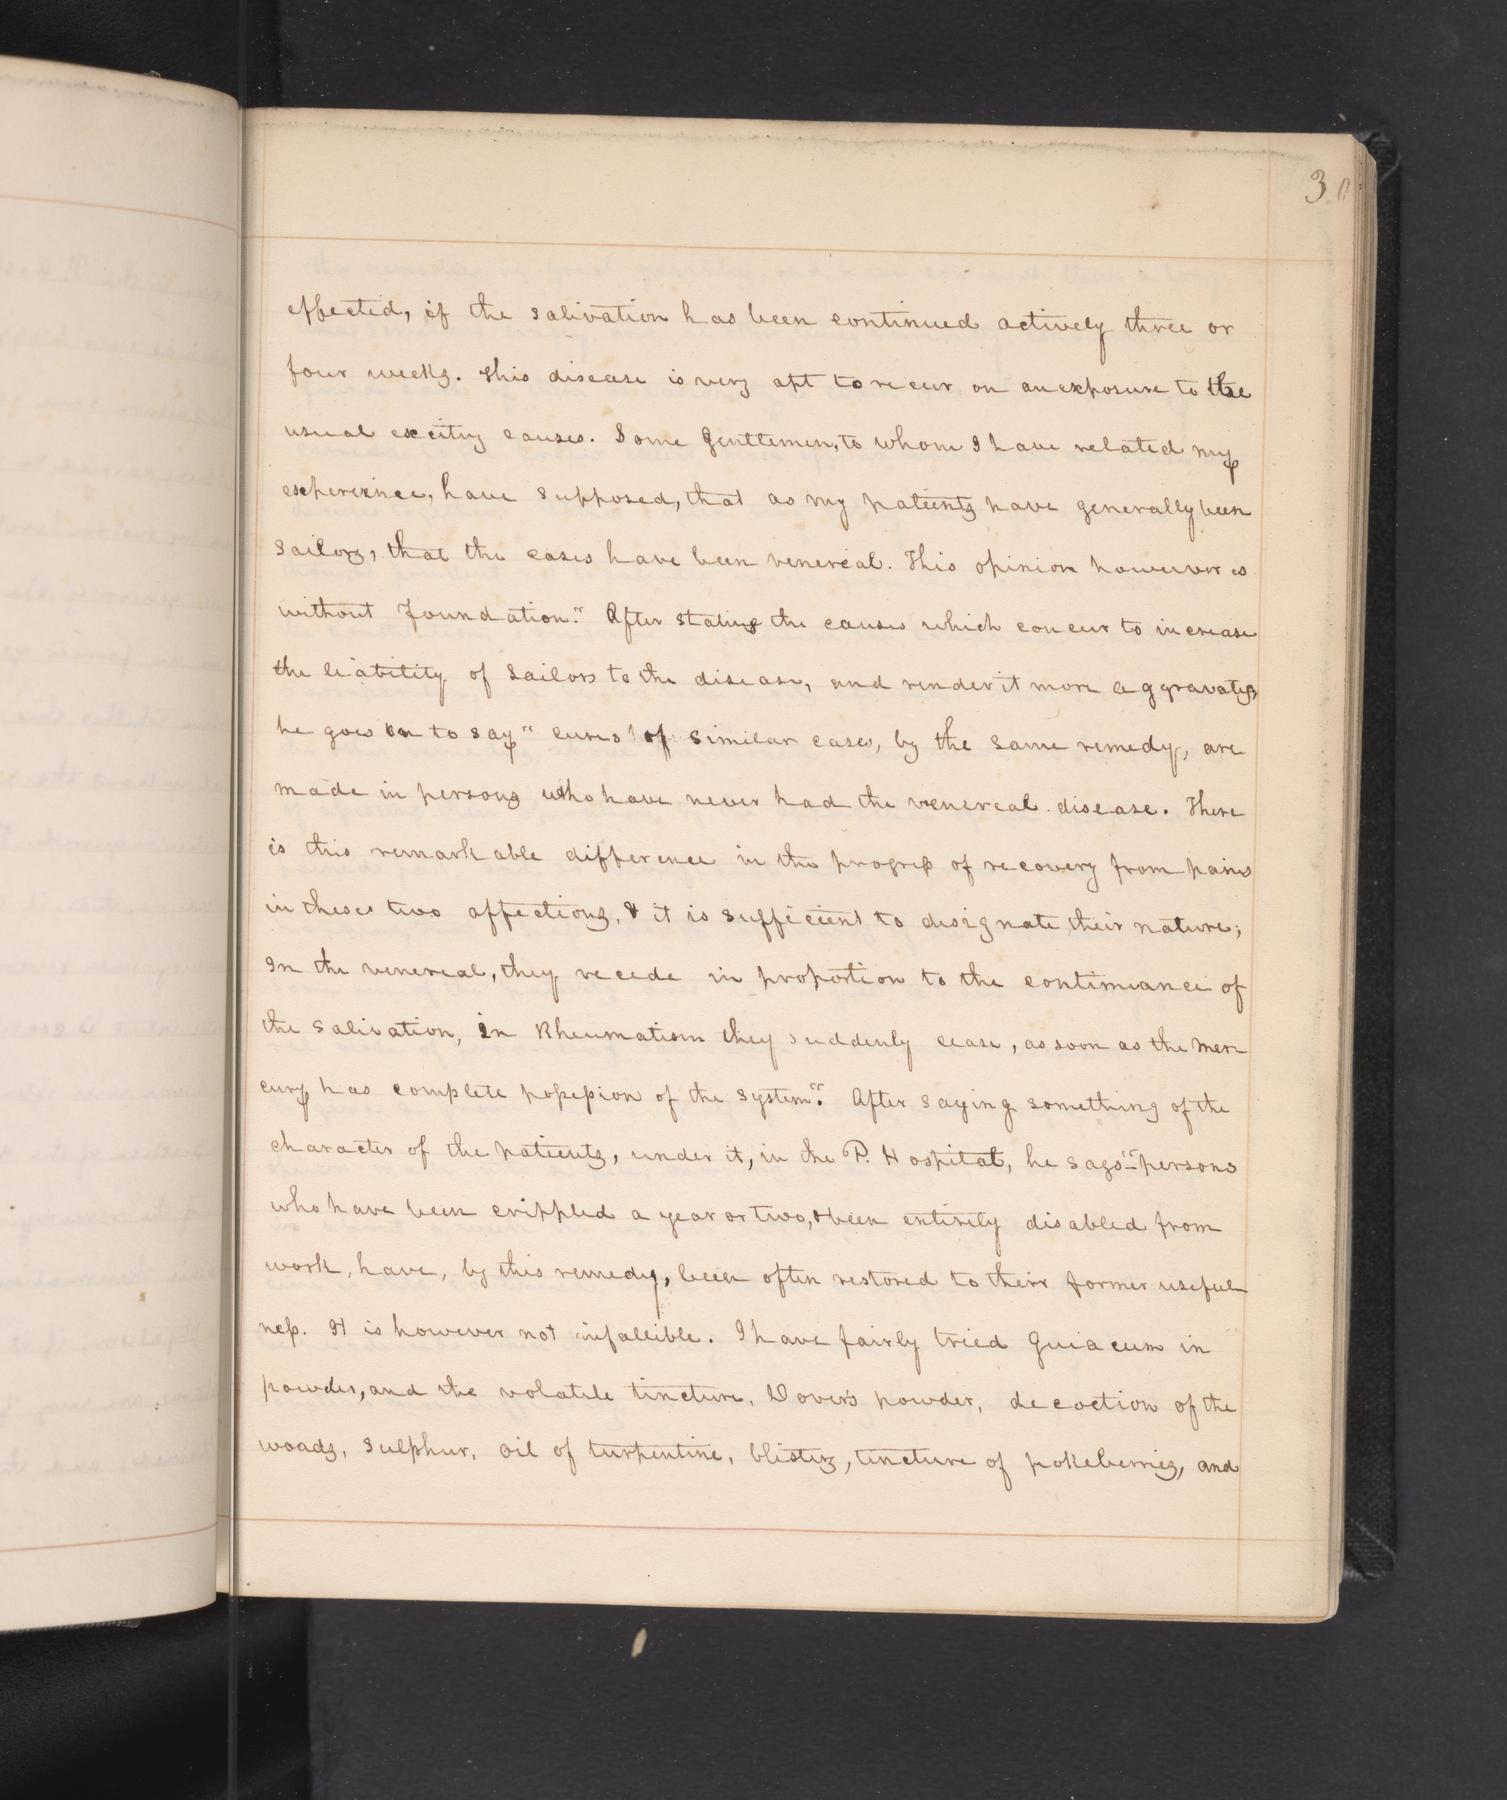 30
effected, if the salivation has been continued actively three or
four weeks. This disease is very apt to recur on an exposure to the
usual exciting causes. Some Gentlemen, to whom I have related my
experience, have supposed, that as my patients have generally been
sailors, that the cases have been venereal. This opinion however is
without foundation." After stating the causes which concur to increase
the liability of sailors to the disease, and render it more aggravated,
he goes on to say " cures of similar cases, by the same remedy, are
made in persons who have never had the venereal disease. There
is this remarkable difference in the progress of recovery from pains
in these two affections, & it is sufficient to designate their nature;
In the venereal, they recede in proportion to the continuance of
the salivation, in Rheumatism they suddenly cease, as soon as the mer-
cury has complete possession of the system." After saying something of the
character of the patients, under it, in the P. Hospital, he says "persons
who have been crippled a year or two, & been entirely disabled from
work, have, by this remedy, been often restored to their former useful
ness. It is however not infallible. I have fairly tried Guiacum in
powder, and the volatile tincture, Dover's powder, decoction of the
woods, sulphur, oil of turpentine, blisters, tincture of pokeberries, and